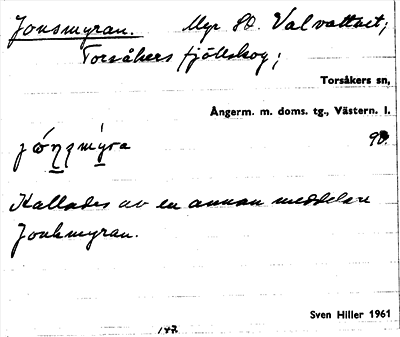 Jonsmyran. Myr SO. Valvattnet;
Torsåkers fjällskog;
Torsåkers sn,
Ångerm. m. doms. tg., Västern. l.
90.
Kallades av en annan meddelare
Jonkmyran.
Sven Hiller 1961
147